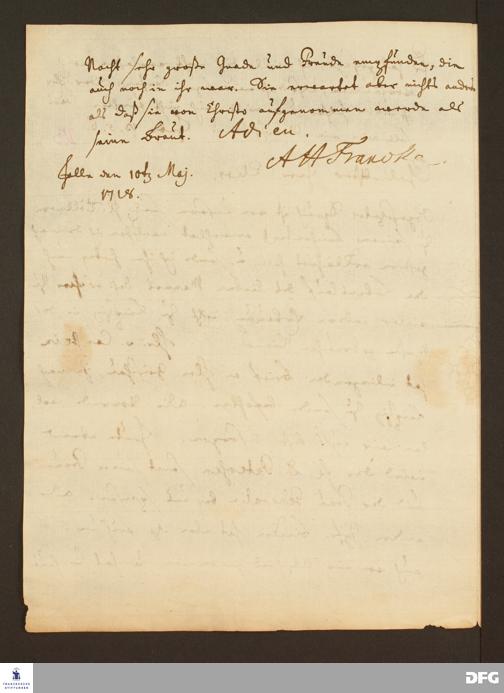 Nacht sehr große Gnade und Freude empfunden, die
auch noch in ihr war. Sie erwartet aber nichts anders
als daß sie von Christo aufgenommen werde als
seine Braut. Adieu.
AHFrancke
Halle den 10t Maj.
1718.
FRANCKESCHE
STIFTUNGEN
DFG